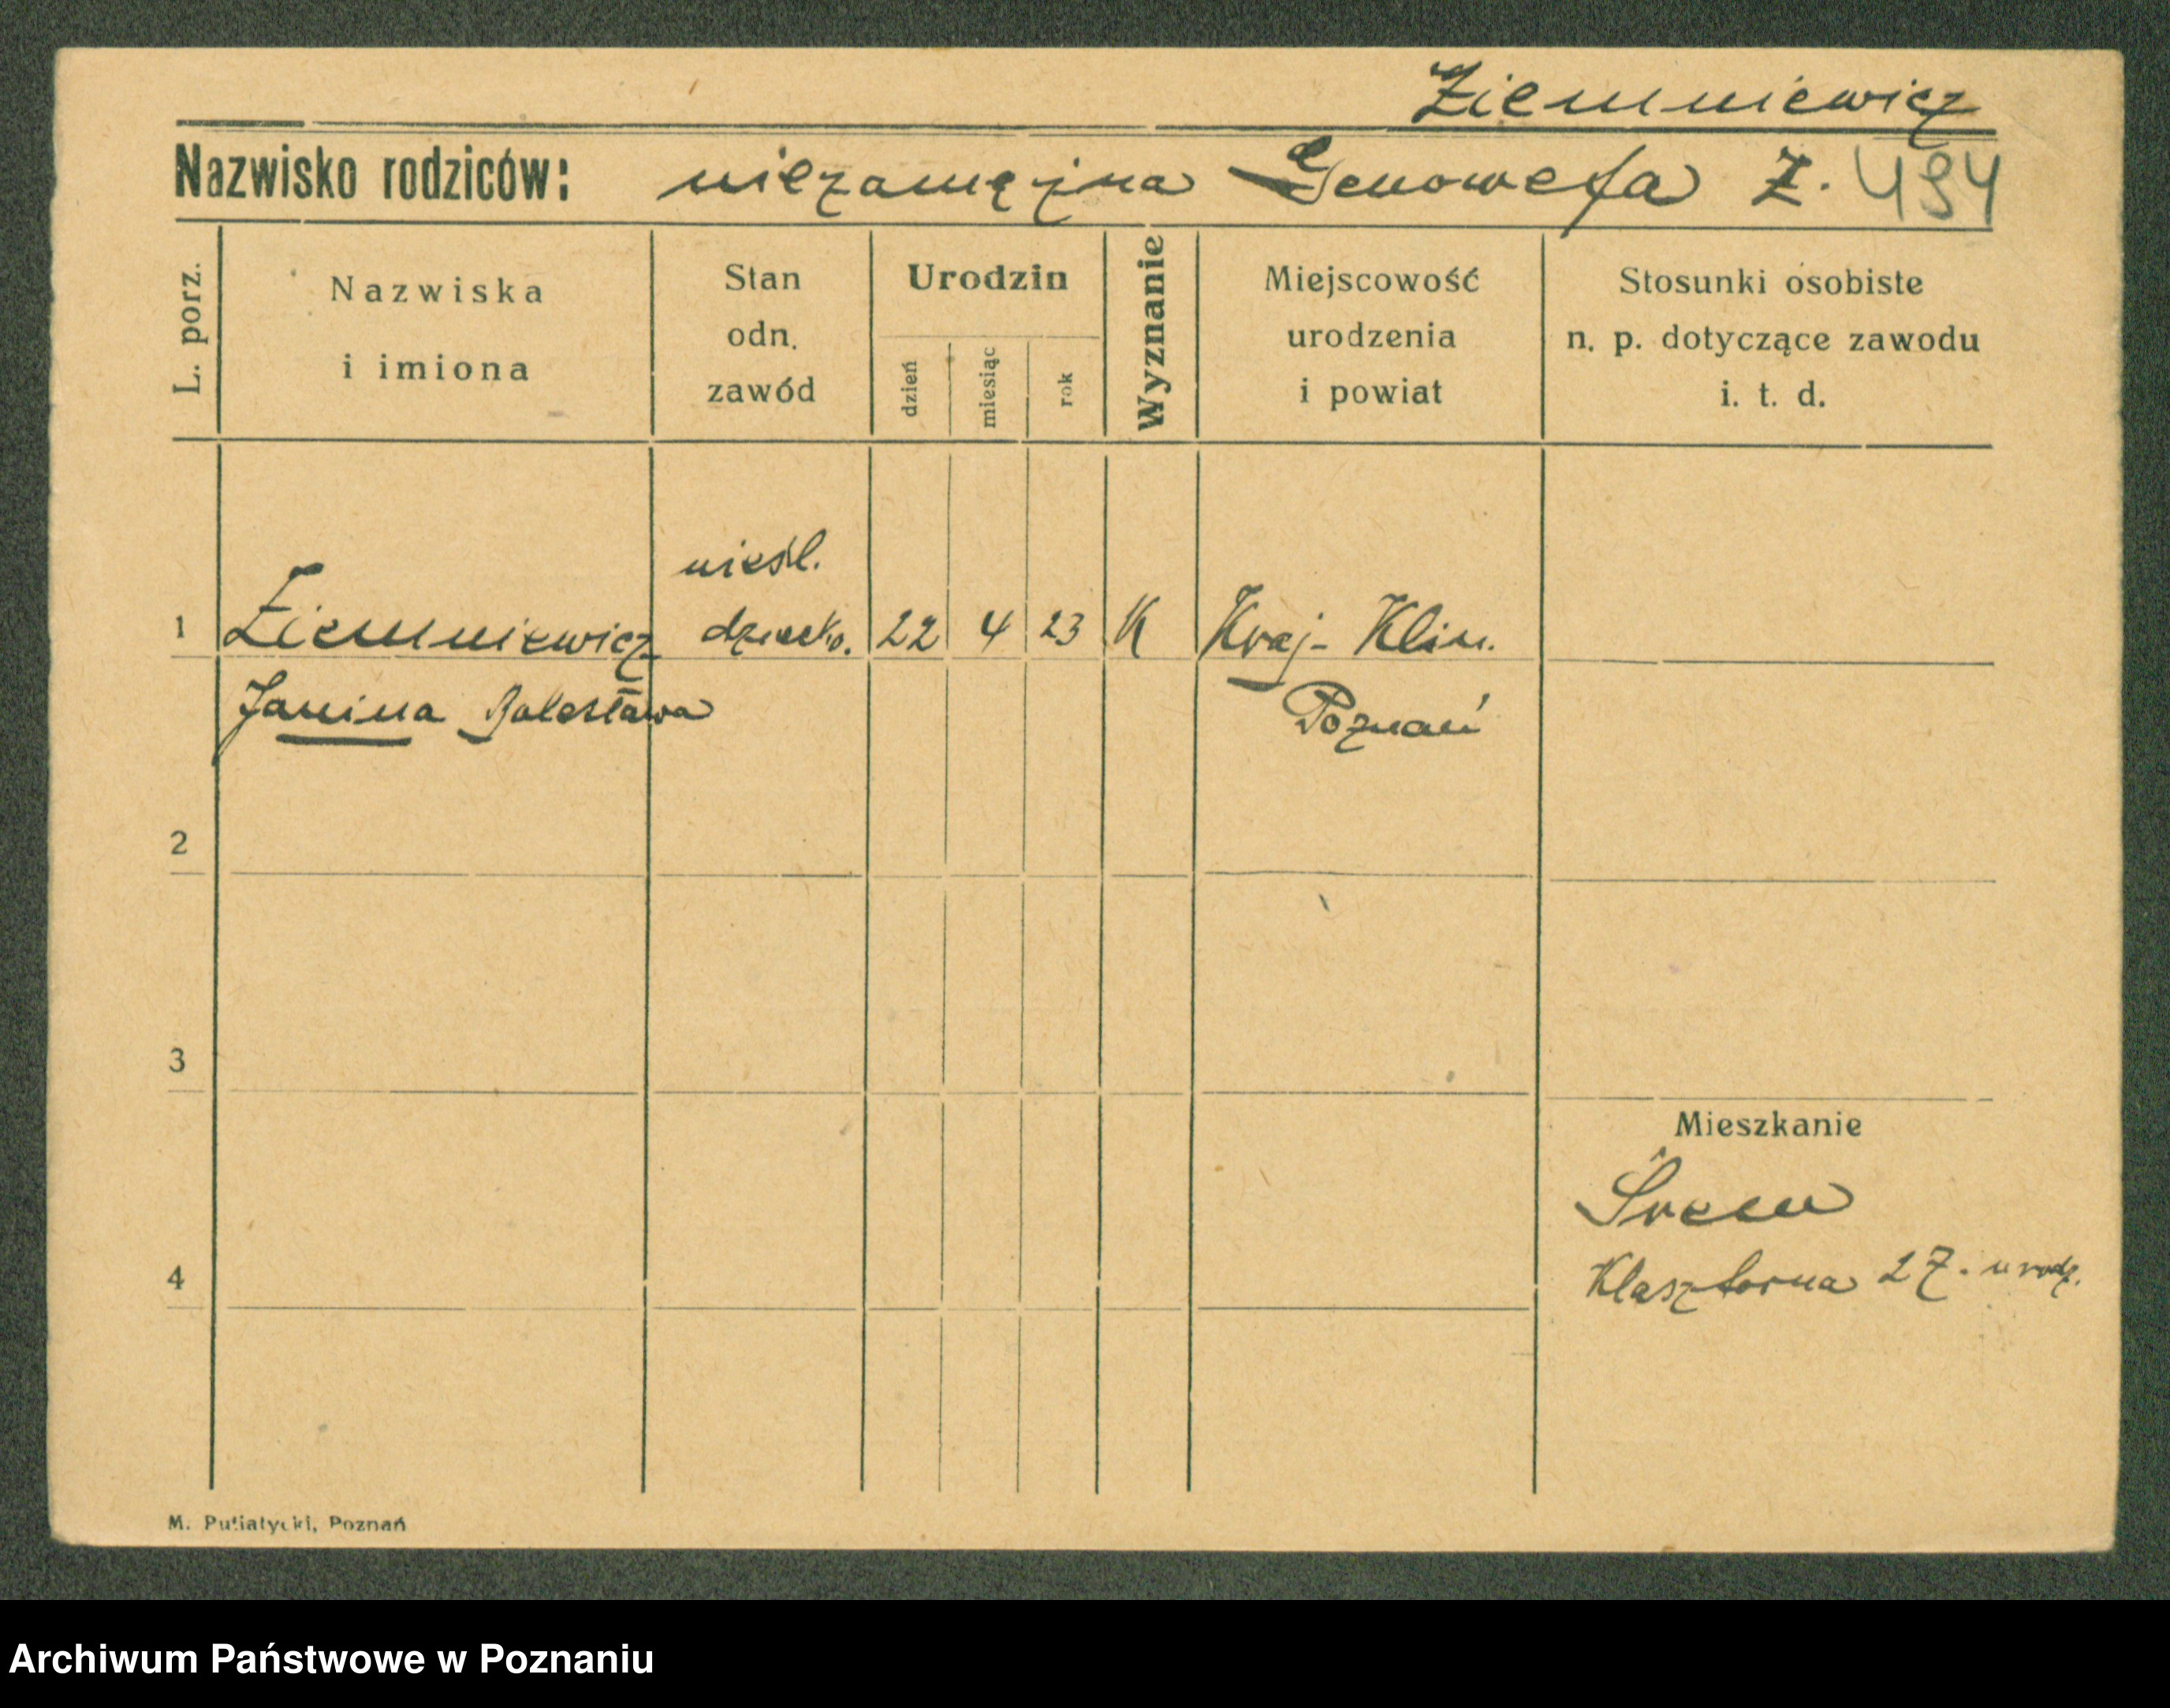 Ziemniewicz
Nazwisko rodziców: niezamężna Genowefa Z. 494
L. porz.
Nazwiska
i imiona
Stan
odn.
zawód
Urodzin
dzień
miesiąc
rok
Wyznanie
Miejscowość
urodzenia
i powiat
Stosunki osobiste
n. p. dotyczące zawodu
i. t. d.
nieśl.
1 Ziemniewicz dziecko. 22 4 23 K Kraj- Klin.
Janina Bolesława Poznań
2
3
Mieszkanie
Śrem
4 Klasztorna 27. urodz.
M. Putiatycki, Poznań
Archiwum Państwowe w Poznaniu